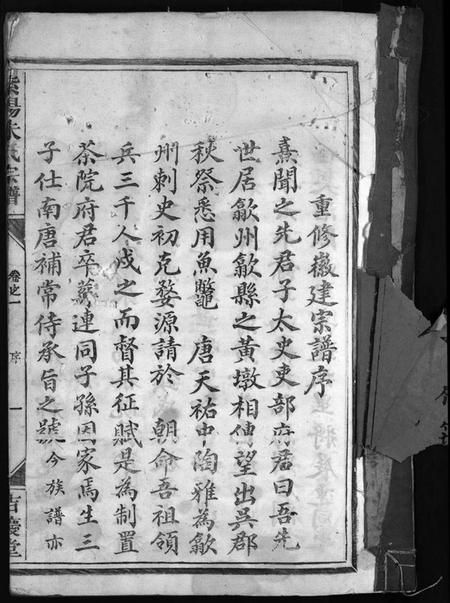 重修徽建宗譜序
熹聞之先君子太史吏部府君曰吾先
世居歙州歙縣之黃墩相傳望出吳郡
秋祭悉用魚鼈 唐天祐中陶雅為歙
州刺史初克婺源請於 朝命吾祖領
兵三千人戍之而督其征賦是為制置
茶院府君卒葬連同子孫因家焉生三
子仕南唐補常侍承旨之號今族譜亦
紫陽朱氏宗譜
卷之一
序
一
古慶堂